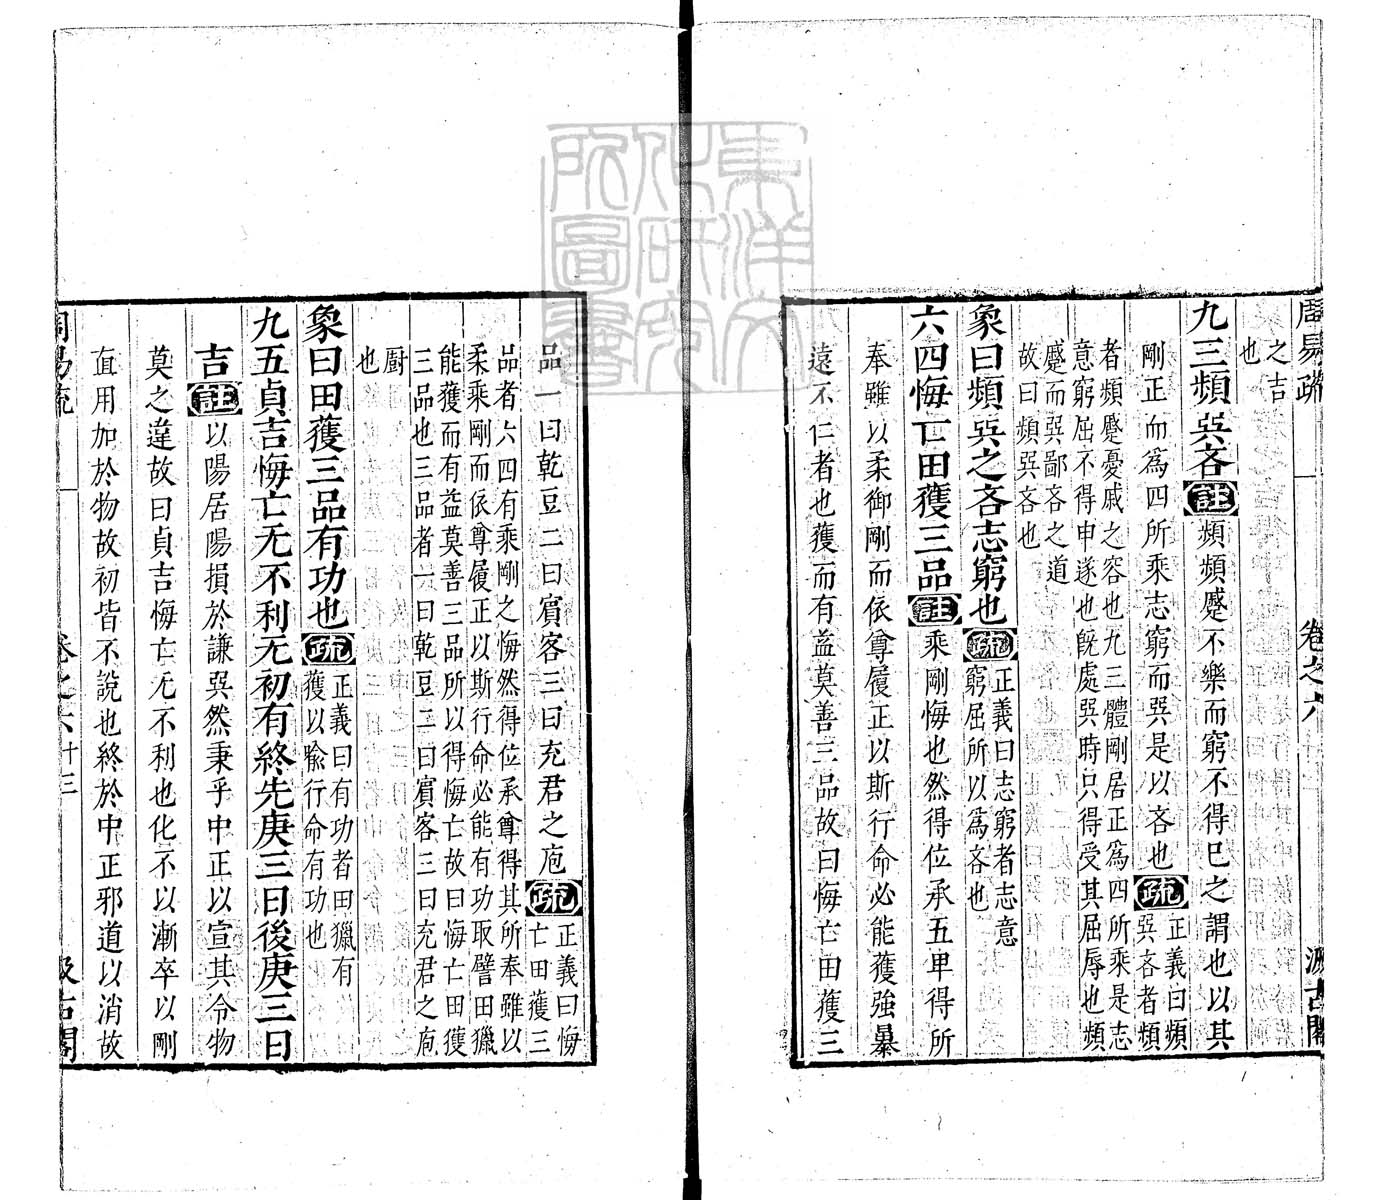 周易疏
卷之六
汲古閣
之吉
也
九三頻巽吝註頻頻蹙不樂而窮不得巳之謂也以其
剛正而爲四所乘志窮而巽是以吝也疏正義曰頻
巽吝者頻
者頻蹙憂戚之容也九三體剛居正爲四所乘是志
意窮屈不得申遂也旣處巽時只得受其屈辱也頻
蹙而巽鄙吝之道
故曰頻巽吝也
象曰頻巽之吝志窮也疏正義曰志窮者志意
窮屈所以爲吝也
六四悔亡田獲三品註乘剛悔也然得位承五卑得所
奉雖以柔御剛而依尊履正以斯行命必能獲強暴
遠不仁者也獲而有益莫善三品故曰悔亡田獲三
品一曰乾豆二曰賓客三曰充君之庖疏正義曰悔
亡田獲三
品者六四有乘剛之悔然得位承尊得其所奉雖以
柔乘剛而依尊履正以斯行命必能有功取譬田獵
能獲而有益莫善三品所以得悔亡故曰悔亡田獲
三品也三品者一曰乾豆二曰賓客三曰充君之庖
厨
也
象曰田獲三品有功也疏正義曰有功者田獵有
獲以喻行命有功也
九五貞吉悔亡无不利无初有終先庚三日後庚三日
吉註以陽居陽損於謙巽然秉乎中正以宣其令物
莫之違故曰貞吉悔亡无不利也化不以漸卒以剛
直用加於物故初皆不說也終於中正邪道以消故
周易疏
卷之六
十三
汲古閣
東洋文化研究所圖書